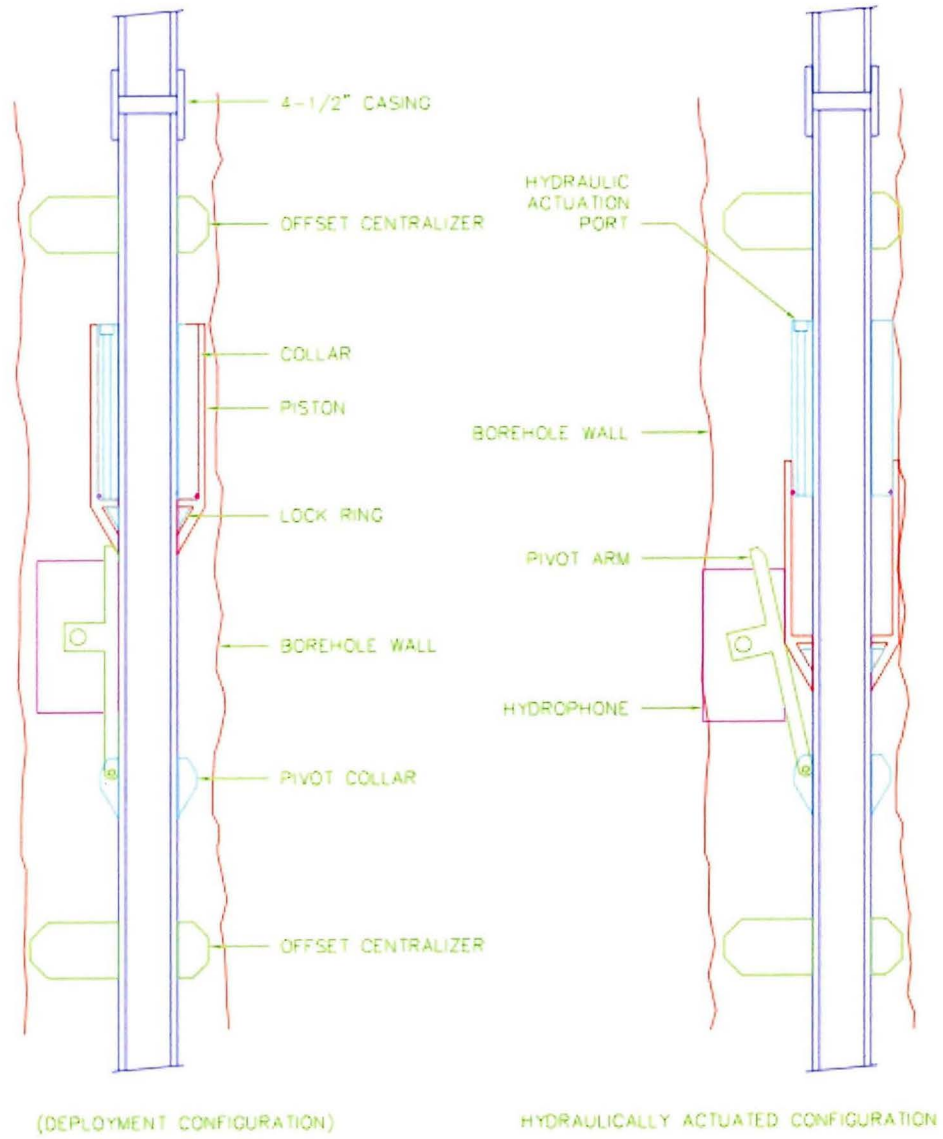 4-1/2" CASING
OFFSET CENTRALIZER
COLLAR
PISTON
LOCK RING
BOREHOLE WALL
PIVOT COLLAR
OFFSET CENTRALIZER
(DEPLOYMENT CONFIGURATION)
HYDRAULIC
ACTUATION
PORT
BOREHOLE WALL
PIVOT ARM
HYDROPHONE
HYDRAULICALLY ACTUATED CONFIGURATION